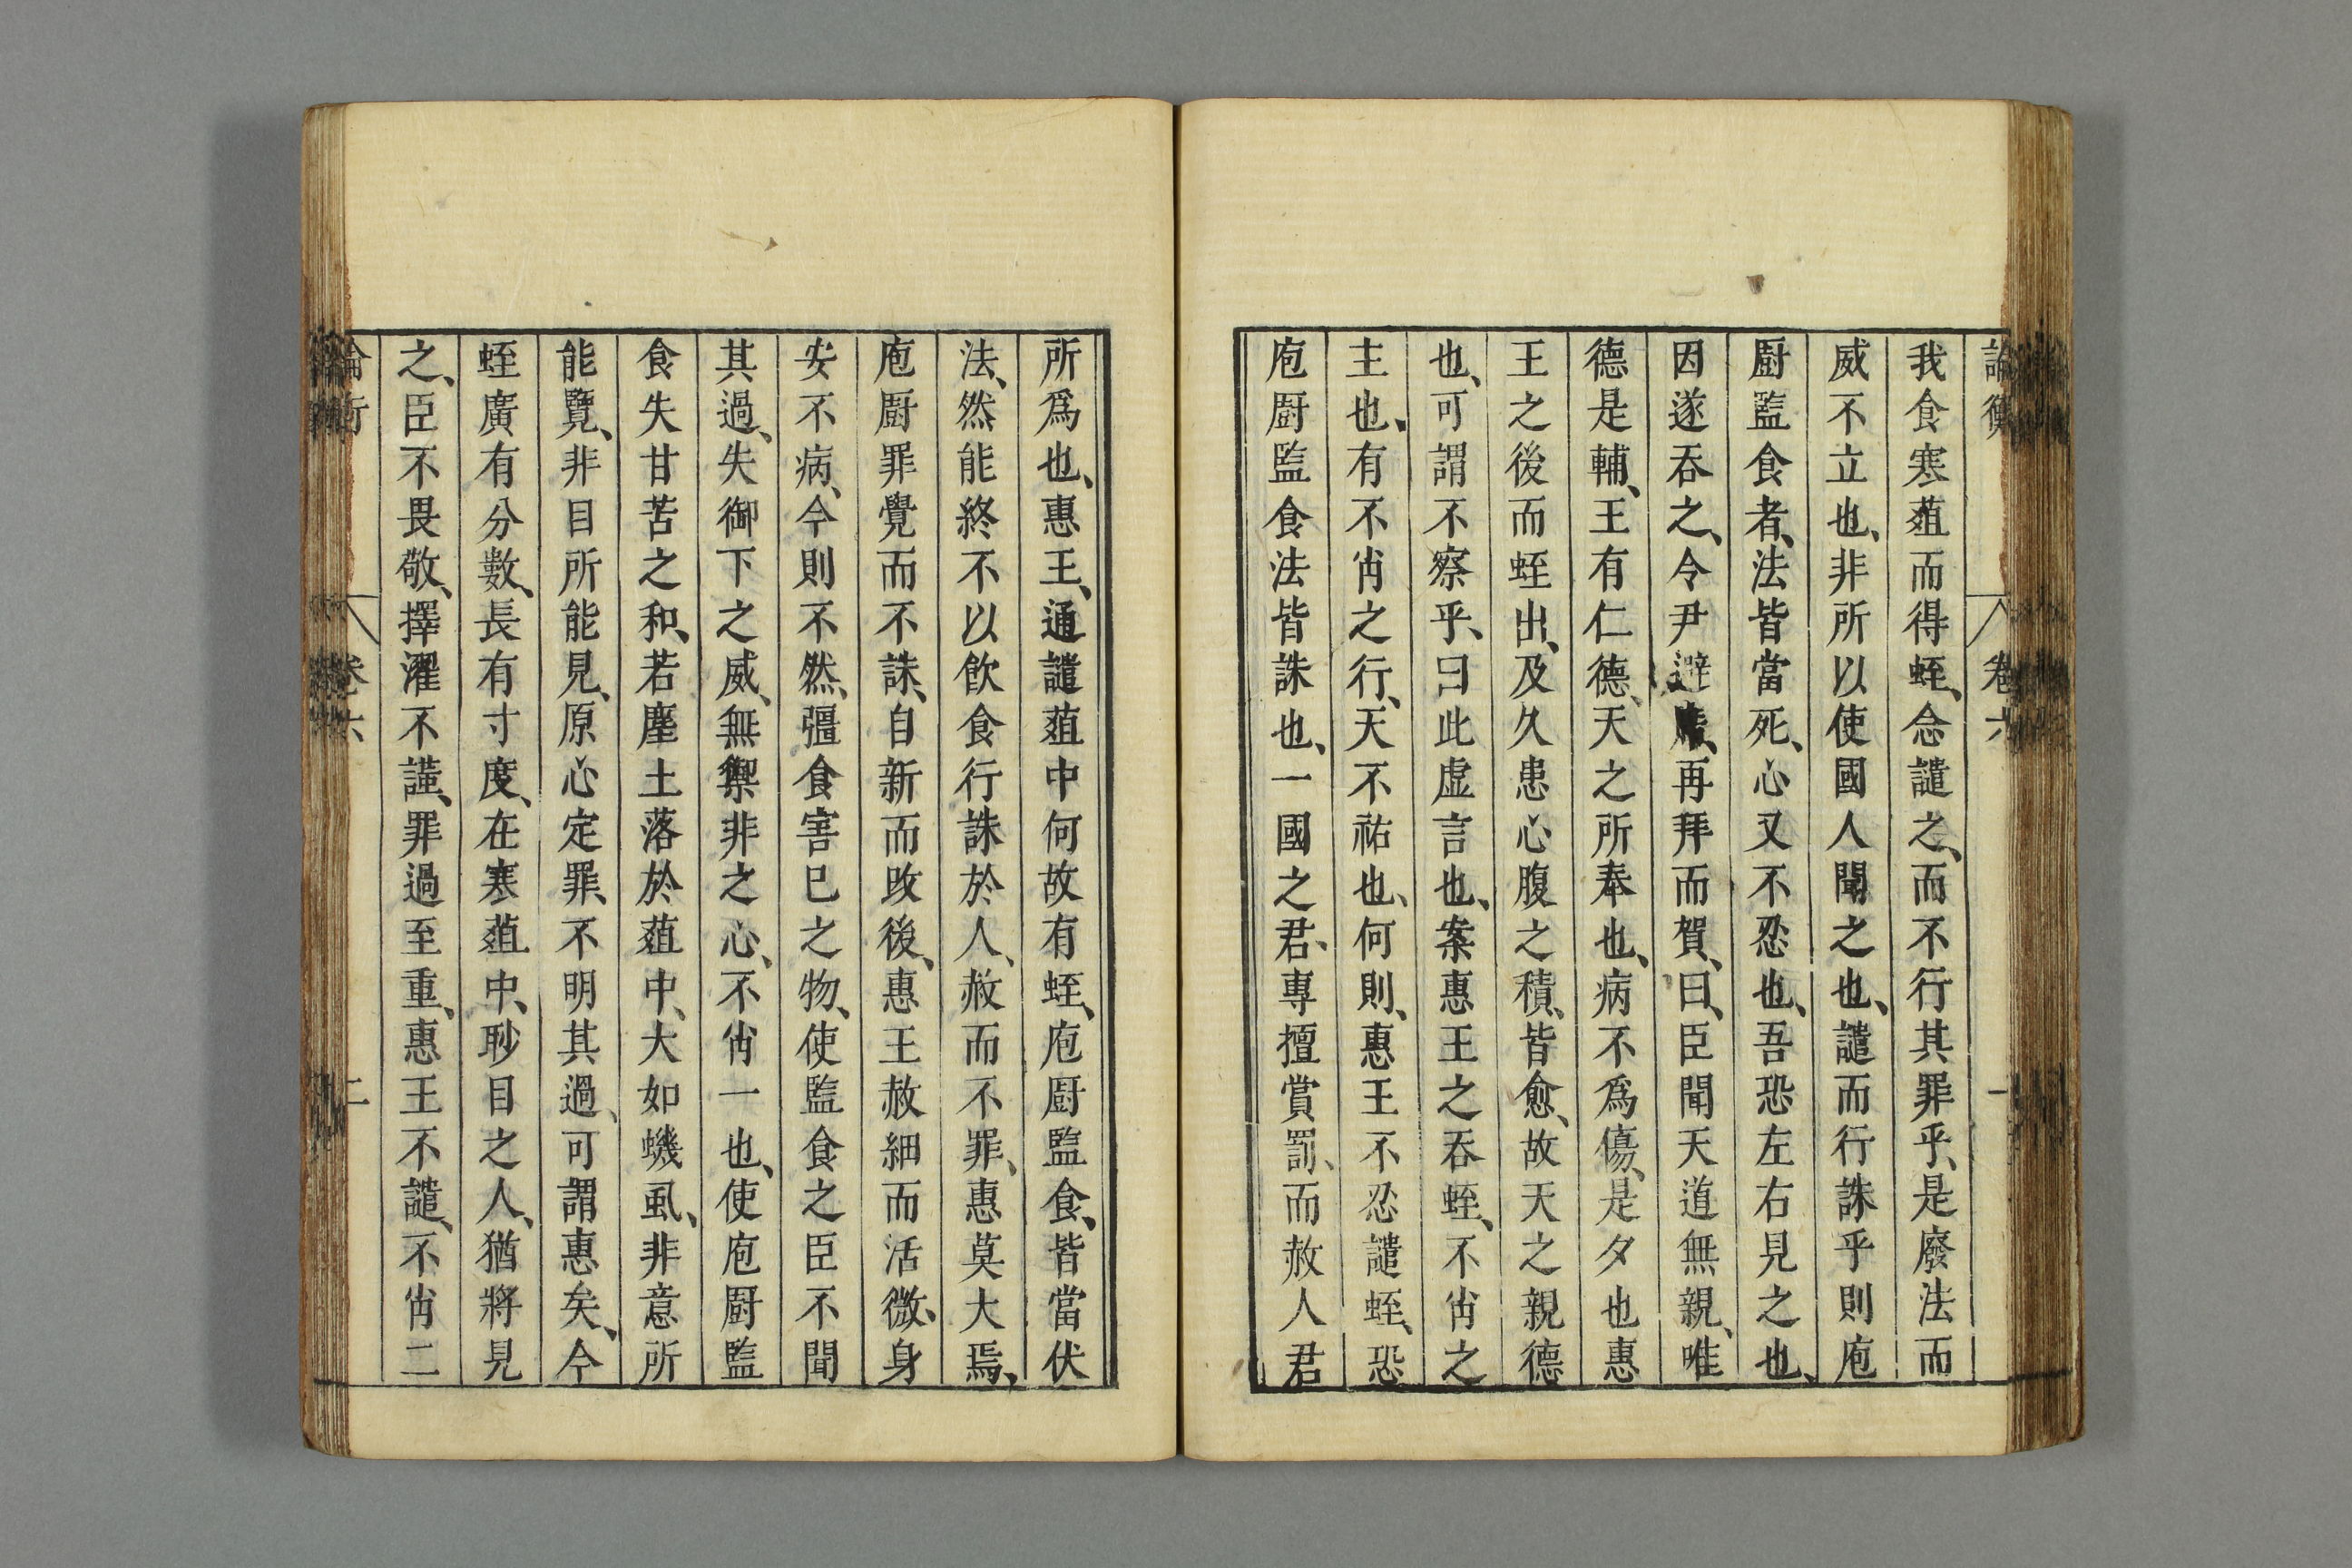 論衡 卷六 一
我食寒菹而得蛭、念譴之、而不行其罪乎、是廢法而
威不立也、非所以使國人聞之也、譴而行誅乎則庖
厨監食者、法皆當死、心又不忍也、吾恐左右見之也、
因遂吞之、令尹避席、再拜而賀、曰、臣聞天道無親、唯
德是輔、王有仁德、天之所奉也、病不爲傷、是夕也惠
王之後而蛭出、及久患心腹之積、皆愈、故天之親德
也、可謂不察乎、曰此虛言也、案惠王之吞蛭、不肖之
主也、有不肖之行、天不祐也、何則、惠王不忍譴蛭、恐
庖厨監食法皆誅也、一國之君、專擅賞罰、而赦人君
所爲也、惠王、通譴菹中何故有蛭、庖厨監食、皆當伏
法、然能終不以飲食行誅於人、赦而不罪、惠莫大焉、
庖厨罪覺而不誅、自新而改後、惠王赦細而活微、身
安不病、今則不然、彊食害己之物、使監食之臣不聞
其過、失御下之威、無禦非之心、不肖一也、使庖厨監
食失甘苦之和、若塵土落於菹中、大如蟣虱、非意所
能覽、非目所能見、原心定罪、不明其過、可謂惠矣、今
蛭廣有分數、長有寸度、在寒菹中、眇目之人、猶將見
之、臣不畏敬、擇濯不謹、罪過至重、惠王不譴、不肖二
論衡 卷六 二